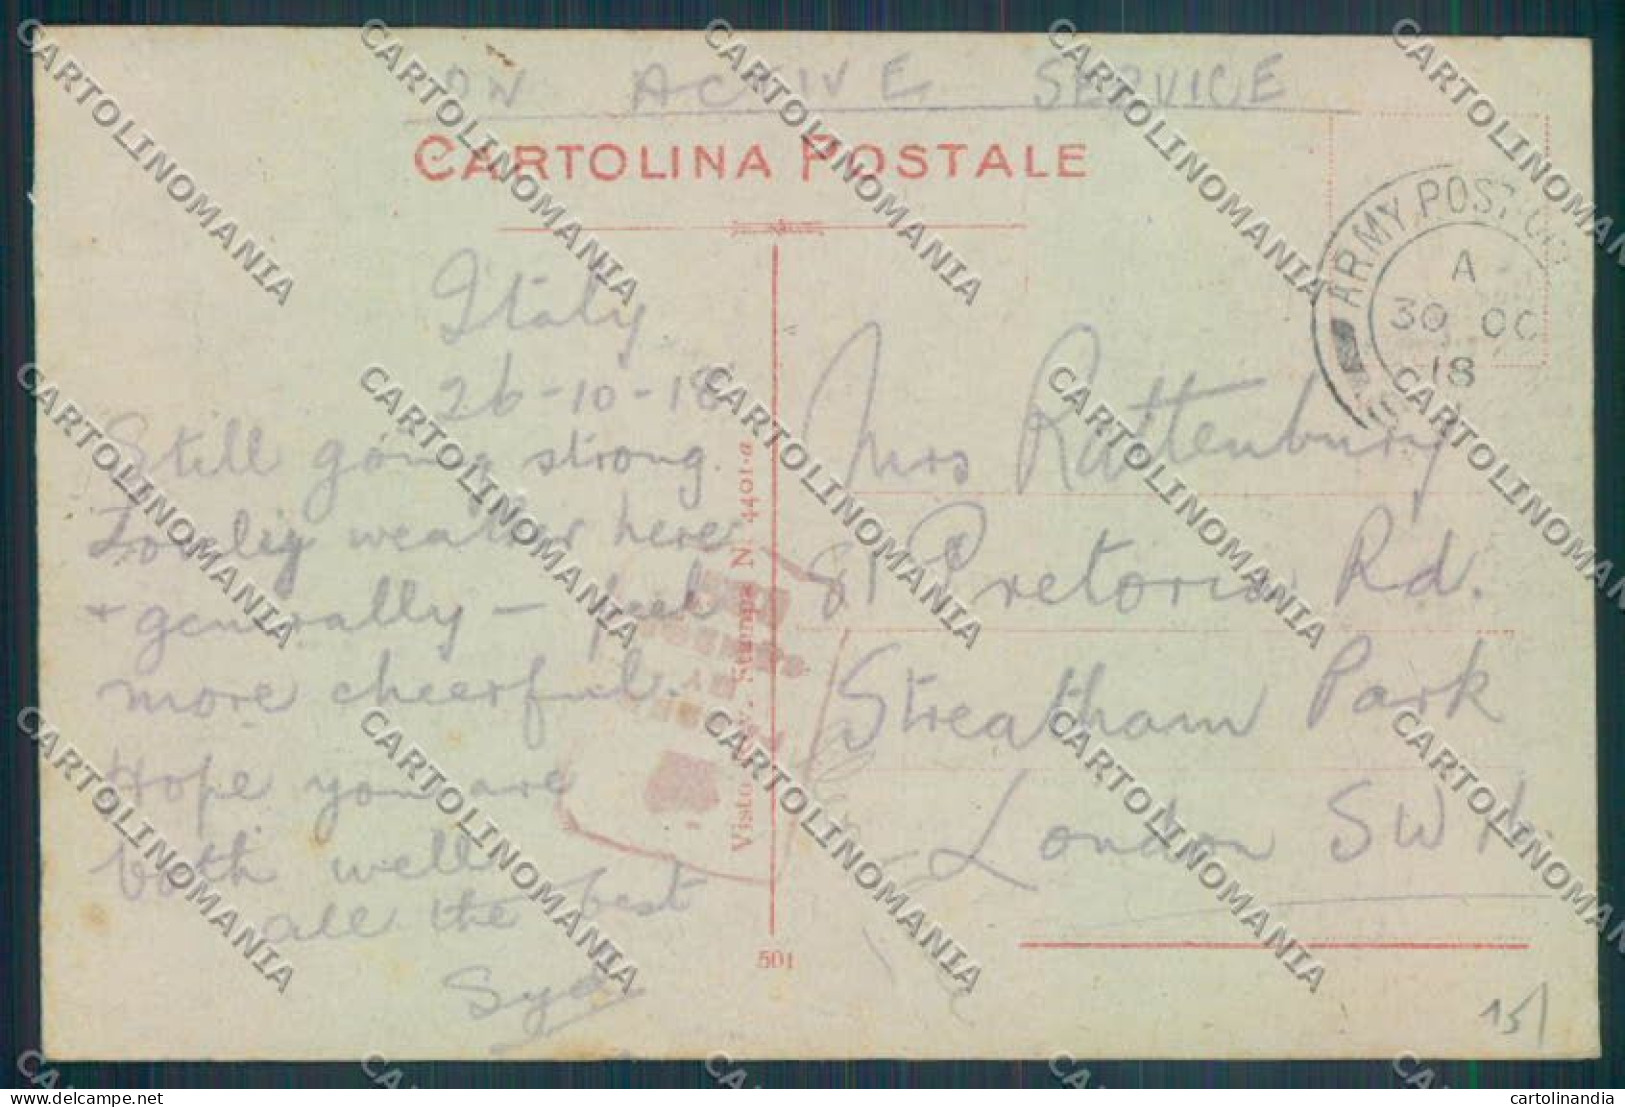 ON ACTIVE SERVICE
CARTOLINA POSTALE
ARMY POST OFF
A
30 OC
18
Italy
26-10-18
Still going strong.
Lovely weather here
+ generally – feel
more cheerful.
Hope you are
both well
all the best
Syd
Mrs Rattenbury
81 Pretoria Rd.
Streatham Park
London SW
Visto Stampa N. 4401-a
501
15
CARTOLINOMANIA
delcampe.net
cartolinandia